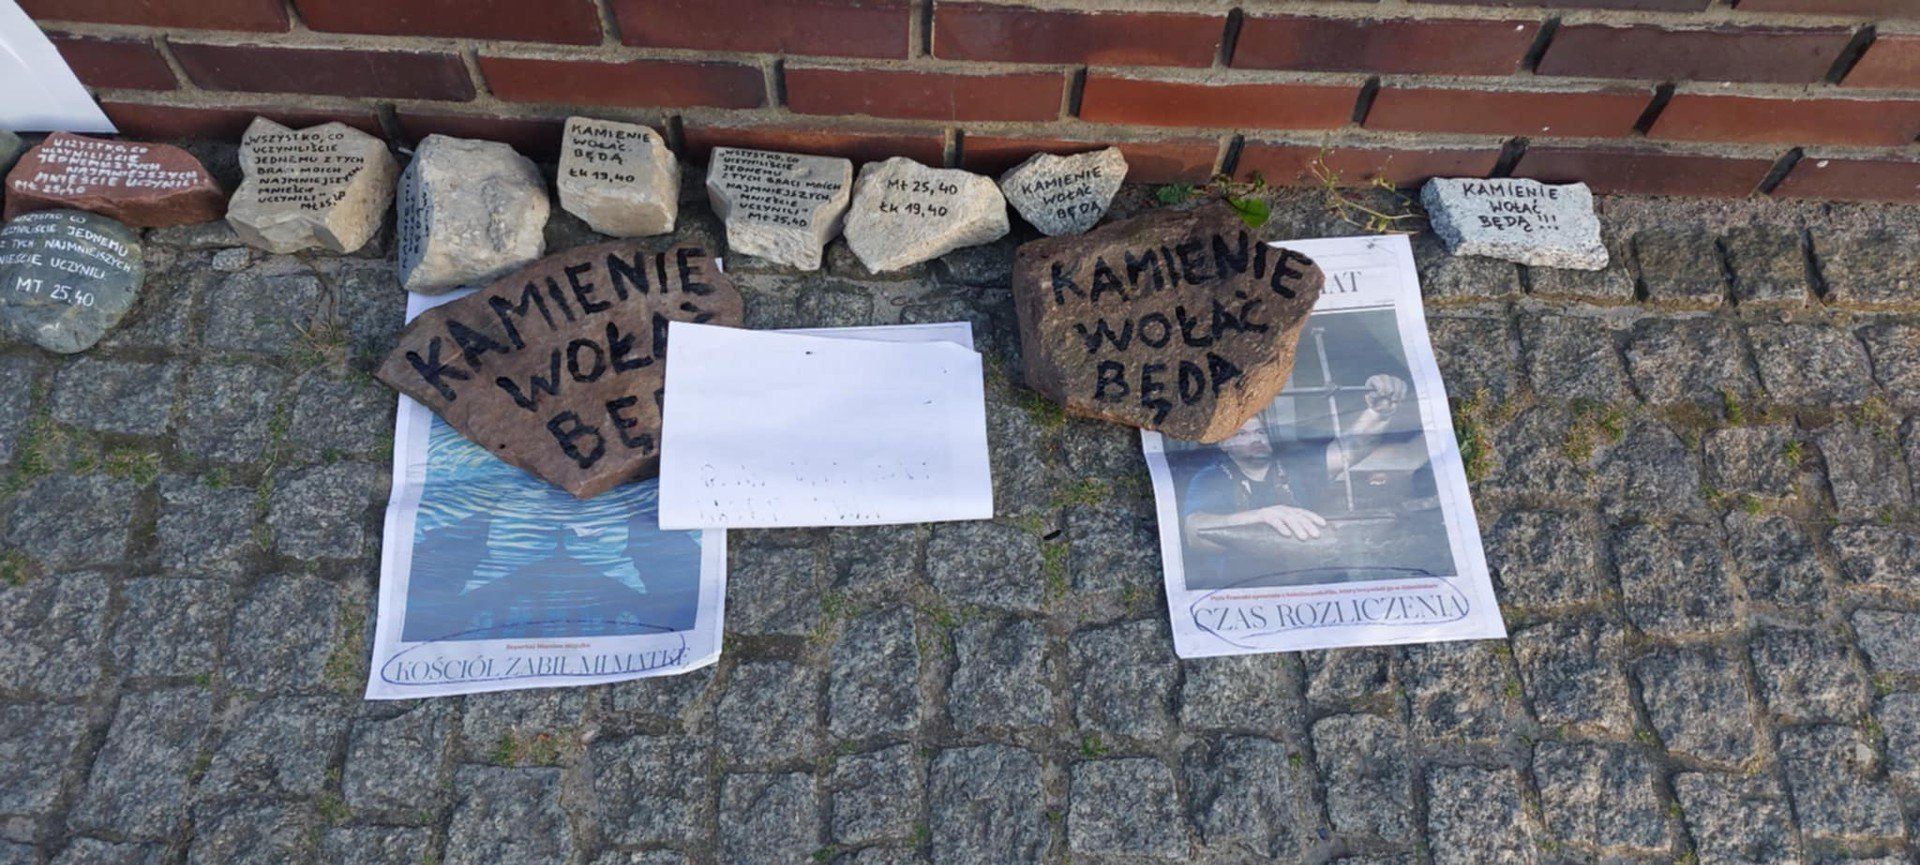 WSZYSTKO, CO
UCZYNILIŚCIE
JEDNEMU Z TYCH
NAJMNIEJSZYCH
MNIEŚCIE UCZYNILI
Mt 25,40
WSZYSTKO CO
UCZYNILIŚCIE JEDNEMU
Z TYCH NAJMNIEJSZYCH
MNIEŚCIE UCZYNILI
MT 25,40
„WSZYSTKO, CO
UCZYNILIŚCIE
JEDNEMU Z TYCH
BRACI MOICH
NAJMNIEJSZYCH,
MNIEŚCIE
UCZYNILI"
Mt 25,40
KAMIENIE
WOŁAĆ
BĘDĄ
Łk 19,40
„WSZYSTKO, CO
UCZYNILIŚCIE
JEDNEMU
Z TYCH BRACI MOICH
NAJMNIEJSZYCH,
MNIEŚCIE
UCZYNILI"
Mt 25,40
Mt 25,40
Łk 19,40
KAMIENIE
WOŁAĆ
BĘDĄ
KAMIENIE
WOŁAĆ
BĘDĄ !!!
KAMIENIE
WOŁAĆ
BĘ
KAMIENIE
WOŁAĆ
BĘDĄ
MAT
KOŚCIÓŁ ZABIŁ MI MATKĘ
CZAS ROZLICZENIA